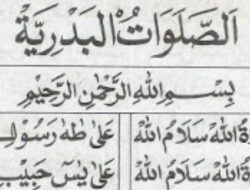 اَلصَّلَوَاتُ الْبَدْرِيَّةُ
بِسْمِ اللهِ الرَّحْمٰنِ الرَّحِيْمِ
ةُ اللهْ سَلَامُ اللهْ عَلىٰ طٰهٰ رَسُوْلِ
ةُ اللهْ سَلَامُ اللهْ عَلىٰ يٰسٓ حَبِيْبِ